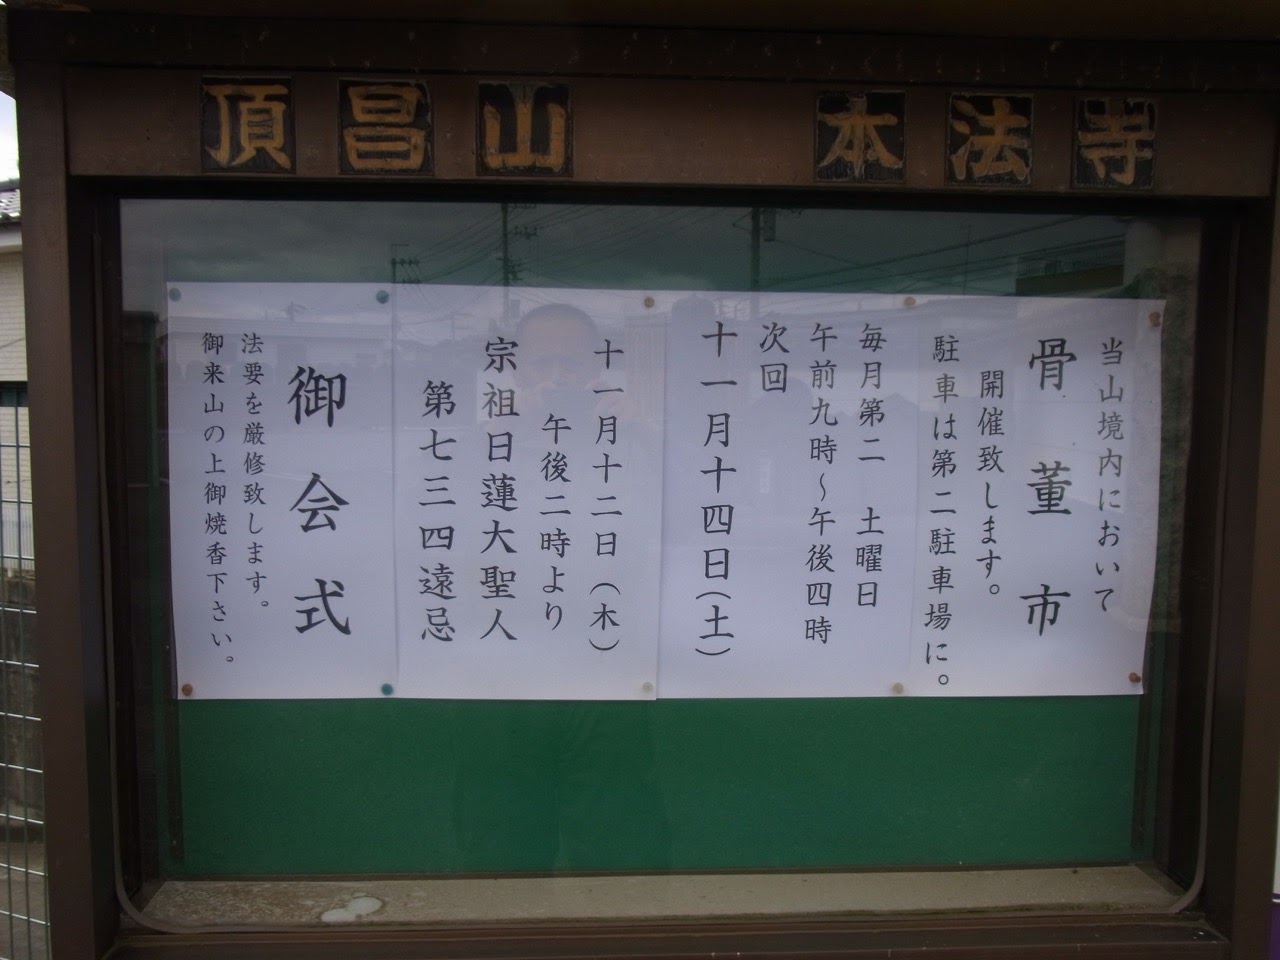 頂昌山 本法寺
当山境内において
骨董市
開催致します。
駐車は第二駐車場に。
毎月第二 土曜日
午前九時～午後四時
次回
十一月十四日(土)
十一月十二日(木)
午後二時より
宗祖日蓮大聖人
第七三四遠忌
御会式
法要を厳修致します。
御来山の上御焼香下さい。